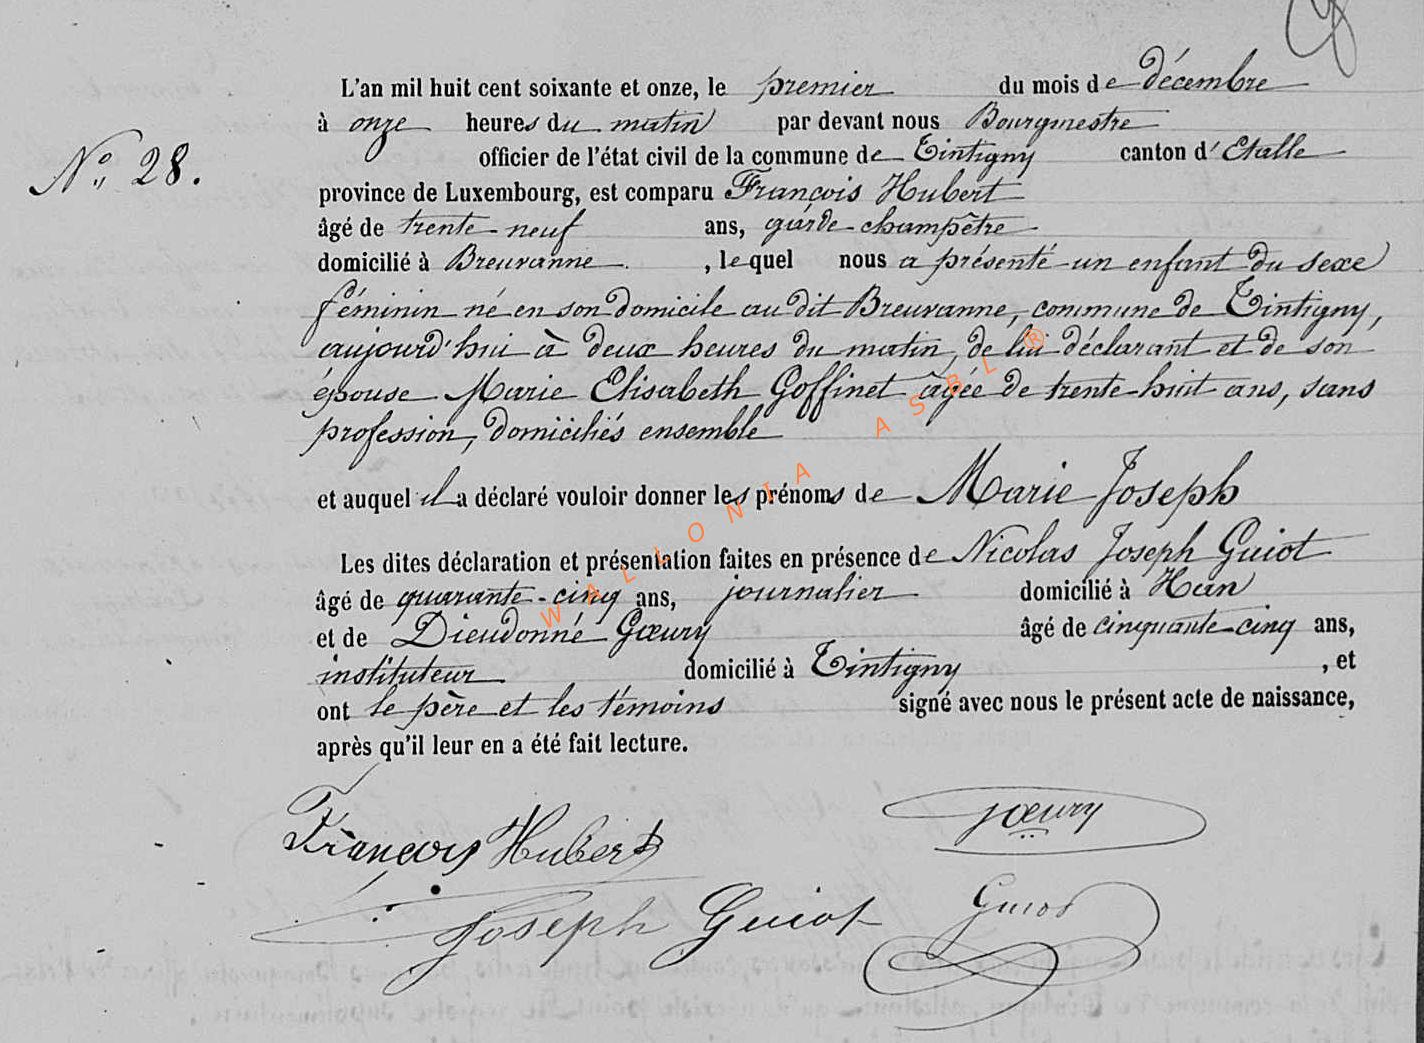 L'an mil huit cent soixante et onze, le premier du mois de décembre
à onze heures du matin par devant nous Bourgmestre
officier de l'état civil de la commune de Tintigny canton d'Etalle
N° 28.
province de Luxembourg, est comparu François Hubert
âgé de trente-neuf ans, garde-champêtre
domicilié à Breuvanne, lequel nous a présenté un enfant du sexe
féminin né en son domicile au dit Breuvanne, commune de Tintigny,
aujourd'hui à deux heures du matin, de lui déclarant et de son
épouse Marie Elisabeth Goffinet âgée de trente-huit ans, sans
profession, domiciliés ensemble
et auquel il a déclaré vouloir donner les prénoms de Marie Joseph
Les dites déclaration et présentation faites en présence de Nicolas Joseph Guiot
âgé de quarante-cinq ans, journalier domicilié à Han
et de Dieudonné Gœury âgé de cinquante-cinq ans,
instituteur domicilié à Tintigny, et
ont le père et les témoins signé avec nous le présent acte de naissance,
après qu'il leur en a été fait lecture.
François Hubert
Gœury
Joseph Guiot
Guiot
WALLONIA ASBL ®